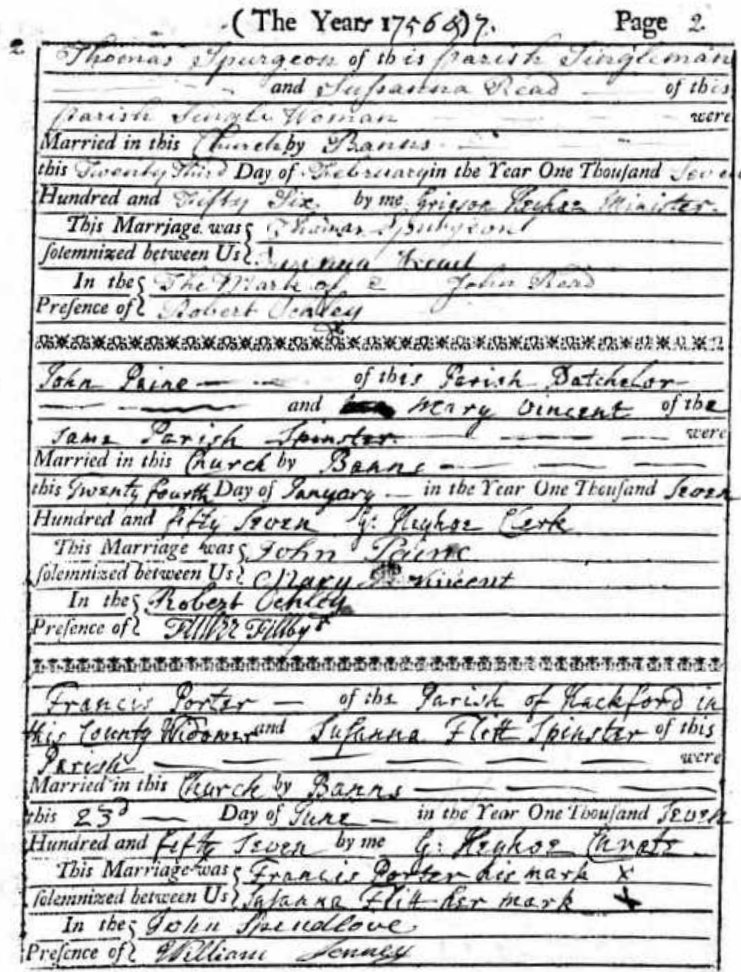 (The Year 1756 & 7. Page 2.
2
Thomas Spurgeon of this parish Singleman
and Susanna Read of this
parish Single Woman were
Married in this Church by Banns
this Twenty Third Day of February in the Year One Thouſand Seven
Hundred and Fifty Six by me Heyhoe Minister.
This Marriage was Thomas Spurgeon
ſolemnized between Us
In the The Mark of John Read
Preſence of Robert
John Paine of this Parish Batchelor
and Mary Vincent of the
same Parish Spinster were
Married in this Church by Banns
this Twenty fourth Day of January in the Year One Thouſand Seven
Hundred and fifty Seven G: Heyhoe Clerk
This Marriage was John Paine
ſolemnized between Us Mary Vincent
In the Robert
Preſence of Fillby
Francis Porter of the Parish of Hackford in
this County Widower and Suſanna Flitt Spinster of this
Parish were
Married in this Church by Banns
this 23d Day of June in the Year One Thouſand Seven
Hundred and fifty Seven by me G: Heyhoe Curate
This Marriage was Francis Porter his mark x
ſolemnized between Us Suſanna Flitt her mark x
In the John Spendlove
Preſence of William Jenney